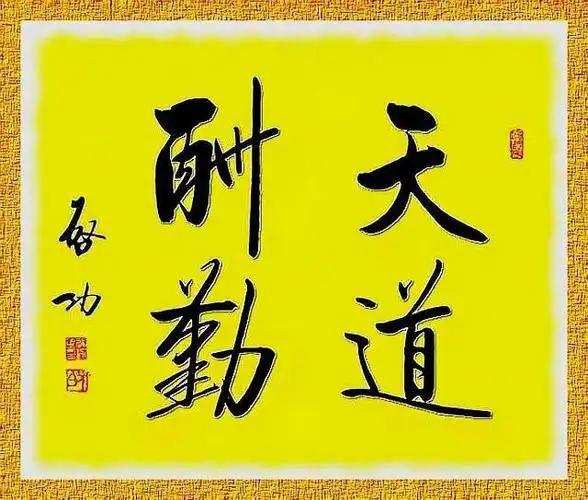 天道
酬勤
启功